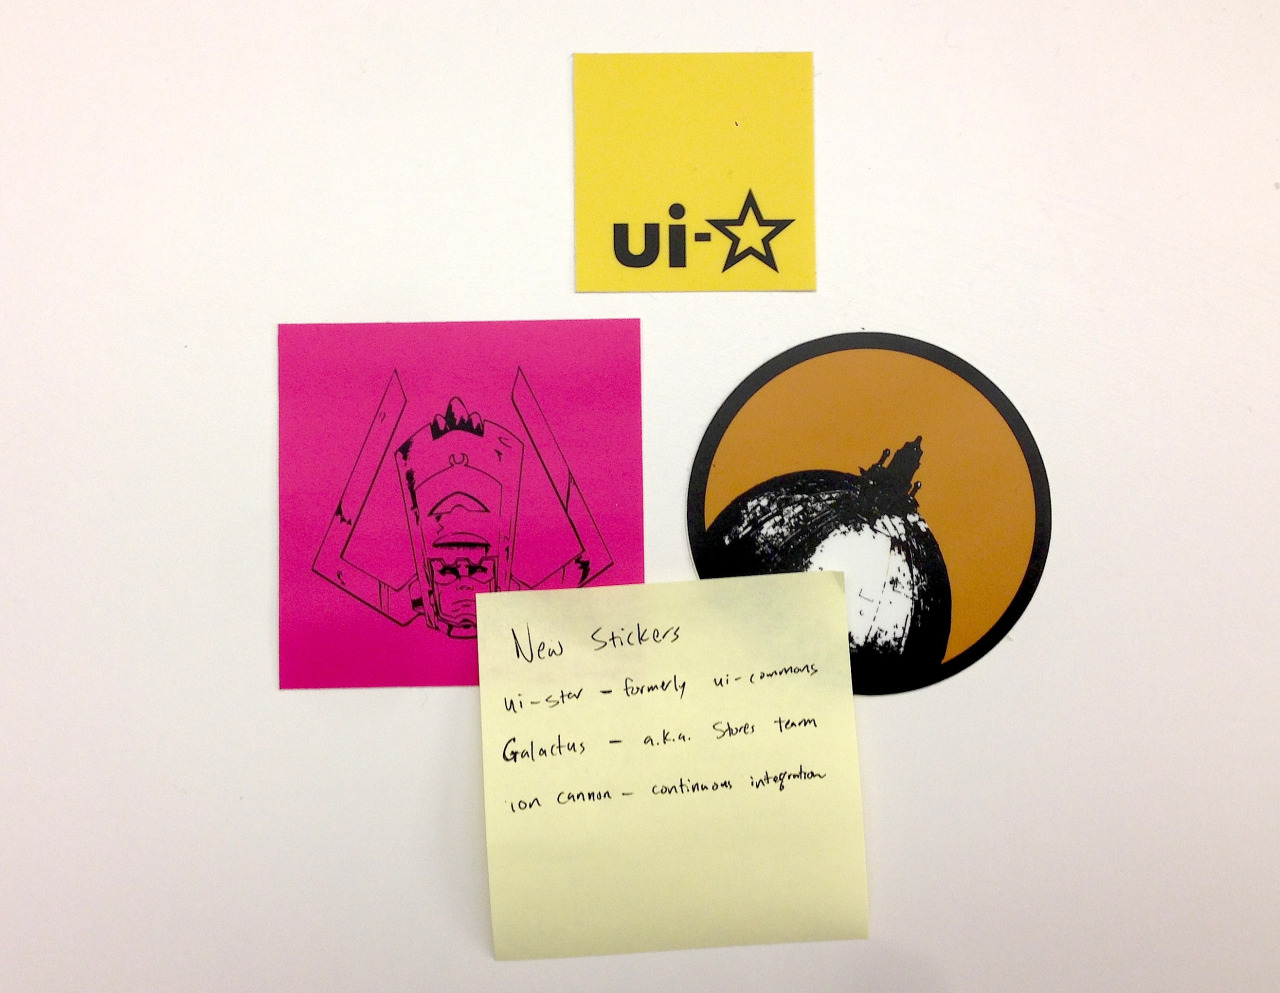 ui-☆
New Stickers
ui-star - formerly ui-commons
Galactus - a.k.a. Stores team
ion cannon - continuous integration